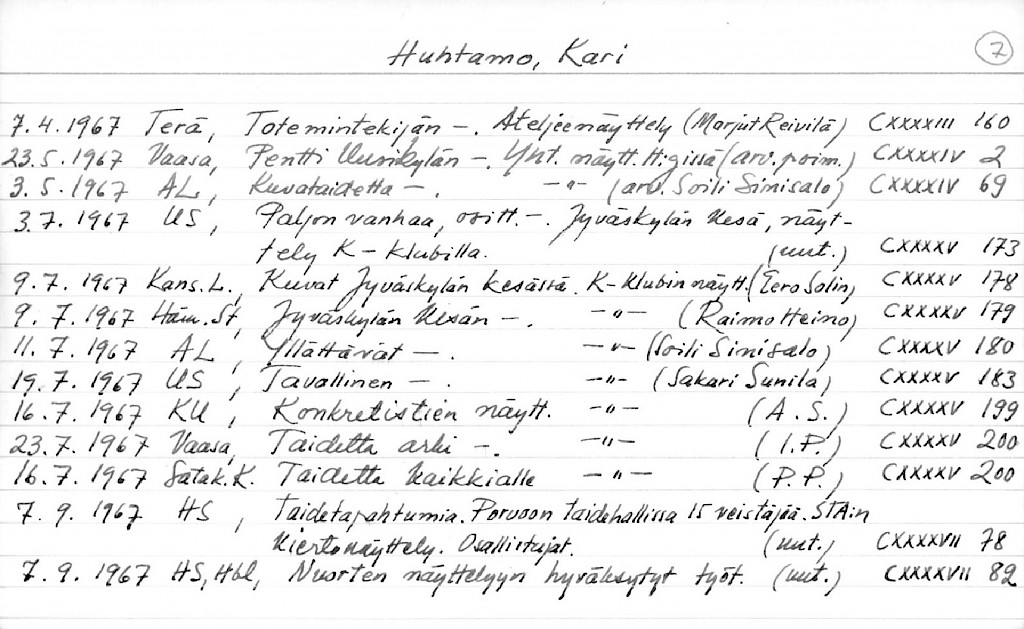 Huhtamo, Kari 7
7.4.1967 Terä, Totemintekijän —. Ateljeenäyttely (Marjut Reivilä) CXXXXIII 160
23.5.1967 Vaasa, Pentti Uusikylän —. Yht. näytt. H:gissä (arv. poim.) CXXXXIV 2
3.5.1967 AL, Kuvataidetta —. —"— (arv. Soili Sinisalo) CXXXXIV 69
3.7.1967 US, Paljon vanhaa, ositt. —. Jyväskylän Kesä, näyt-
tely K-Klubilla. (uut.) CXXXXV 173
9.7.1967 Kans.L., Kuvat Jyväskylän kesässä. K-Klubin näytt. (Eero Salin) CXXXXV 178
9.7.1967 Häm.St, Jyväskylän Kesän —. —"— (Raimo Heino) CXXXXV 179
11.7.1967 AL, Yllättävät —. —"— (Soili Sinisalo) CXXXXV 180
19.7.1967 US, Tavallinen —. —"— (Sakari Sunila) CXXXXV 183
16.7.1967 KU, Konkretistien näytt. —"— (A.S.) CXXXXV 199
23.7.1967 Vaasa, Taidetta arki —. —"— (I.P.) CXXXXV 200
16.7.1967 Satak.K. Taidetta kaikkialle —"— (P.P.) CXXXXV 200
7.9.1967 HS, Taidetapahtumia. Porvoon taidehallissa 15 veistäjää. STA:n
Kiertonäyttely. Osallistujat. (uut.) CXXXXVII 78
7.9.1967 HS, Hbl, Nuorten näyttelyyn hyväksytyt työt. (uut.) CXXXXVII 82